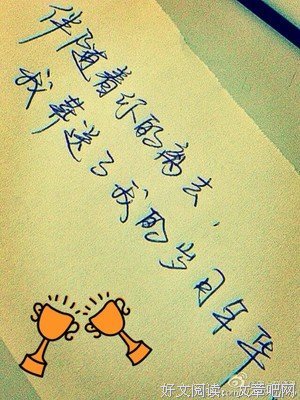 伴随着你的离去，
我葬送了我的岁月年华
好文阅读 文章吧网